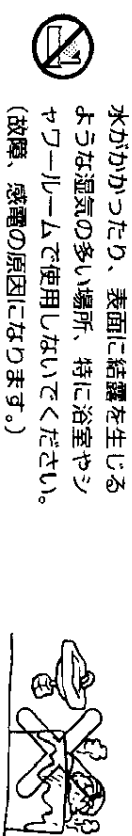 水がかかったり、表面に結露を生じる
ような湿気の多い場所、特に浴室やシ
ャワールームで使用しないでください。
(故障、感電の原因になります。)